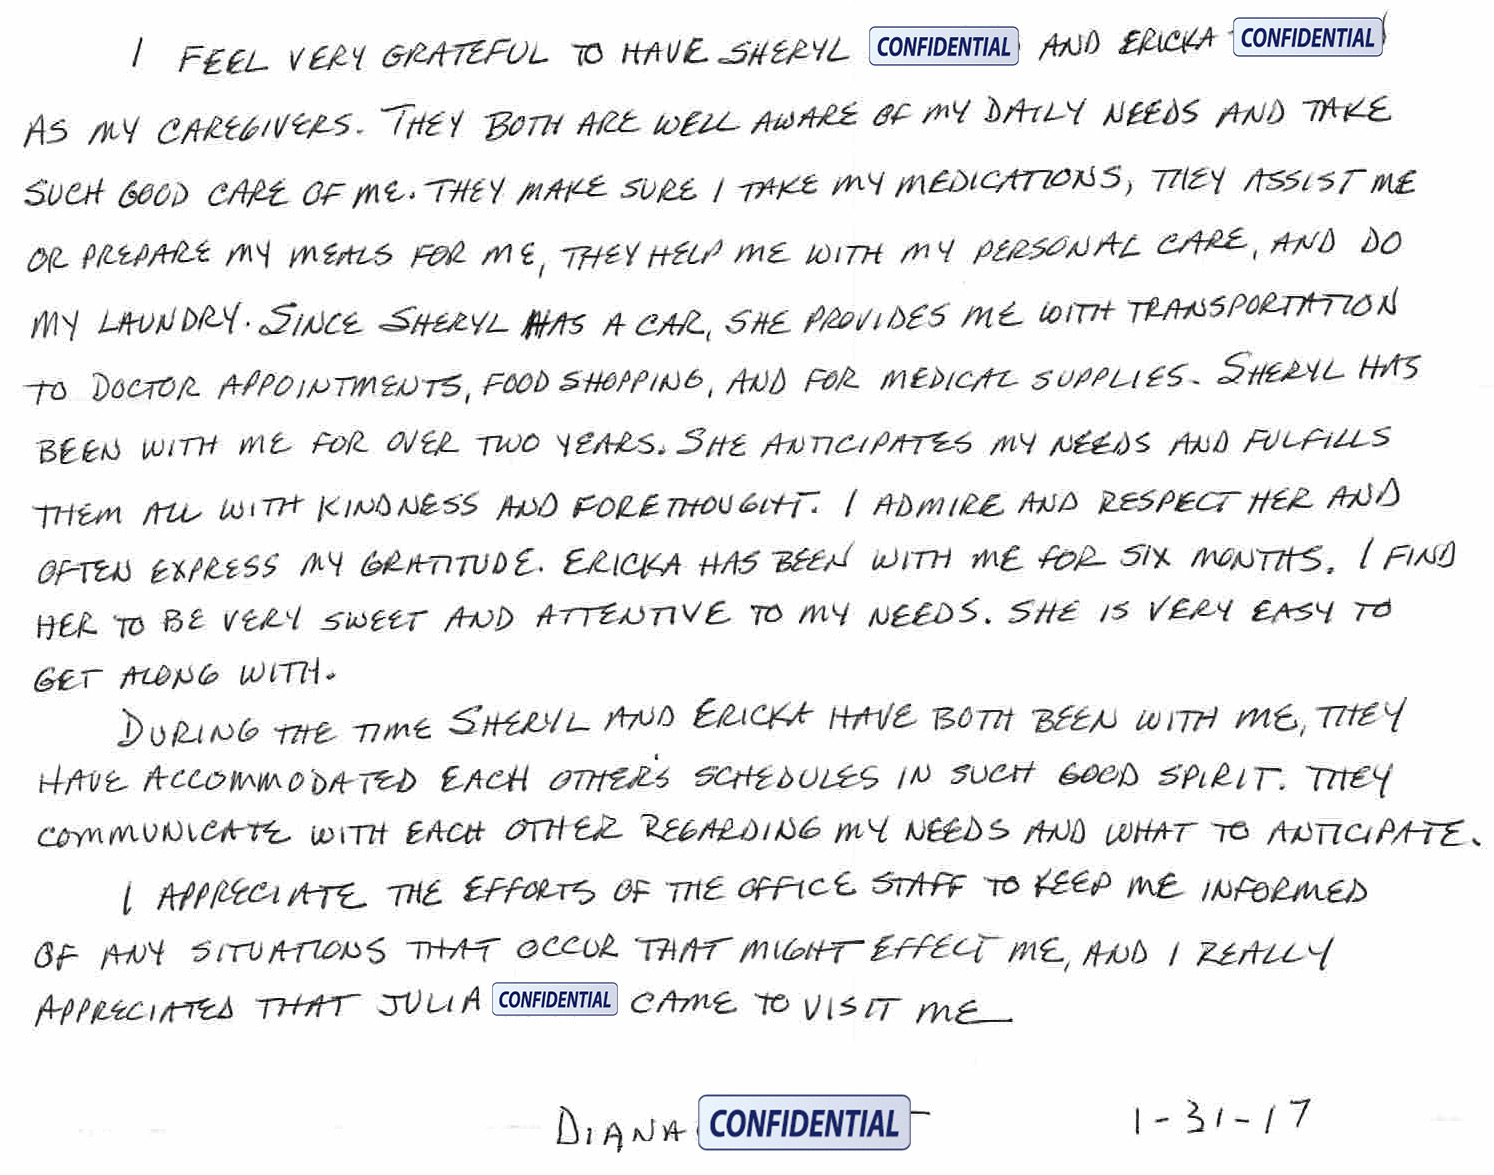 I FEEL VERY GRATEFUL TO HAVE SHERYL CONFIDENTIAL AND ERICKA CONFIDENTIAL
AS MY CAREGIVERS. THEY BOTH ARE WELL AWARE OF MY DAILY NEEDS AND TAKE
SUCH GOOD CARE OF ME. THEY MAKE SURE I TAKE MY MEDICATIONS, THEY ASSIST ME
OR PREPARE MY MEALS FOR ME, THEY HELP ME WITH MY PERSONAL CARE, AND DO
MY LAUNDRY. SINCE SHERYL HAS A CAR, SHE PROVIDES ME WITH TRANSPORTATION
TO DOCTOR APPOINTMENTS, FOOD SHOPPING, AND FOR MEDICAL SUPPLIES. SHERYL HAS
BEEN WITH ME FOR OVER TWO YEARS. SHE ANTICIPATES MY NEEDS AND FULFILLS
THEM ALL WITH KINDNESS AND FORETHOUGHT. I ADMIRE AND RESPECT HER AND
OFTEN EXPRESS MY GRATITUDE. ERICKA HAS BEEN WITH ME FOR SIX MONTHS. I FIND
HER TO BE VERY SWEET AND ATTENTIVE TO MY NEEDS. SHE IS VERY EASY TO
GET ALONG WITH.
DURING THE TIME SHERYL AND ERICKA HAVE BOTH BEEN WITH ME, THEY
HAVE ACCOMMODATED EACH OTHER'S SCHEDULES IN SUCH GOOD SPIRIT. THEY
COMMUNICATE WITH EACH OTHER REGARDING MY NEEDS AND WHAT TO ANTICIPATE.
I APPRECIATE THE EFFORTS OF THE OFFICE STAFF TO KEEP ME INFORMED
OF ANY SITUATIONS THAT OCCUR THAT MIGHT EFFECT ME, AND I REALLY
APPRECIATED THAT JULIA CONFIDENTIAL CAME TO VISIT ME
DIANA CONFIDENTIAL 1-31-17